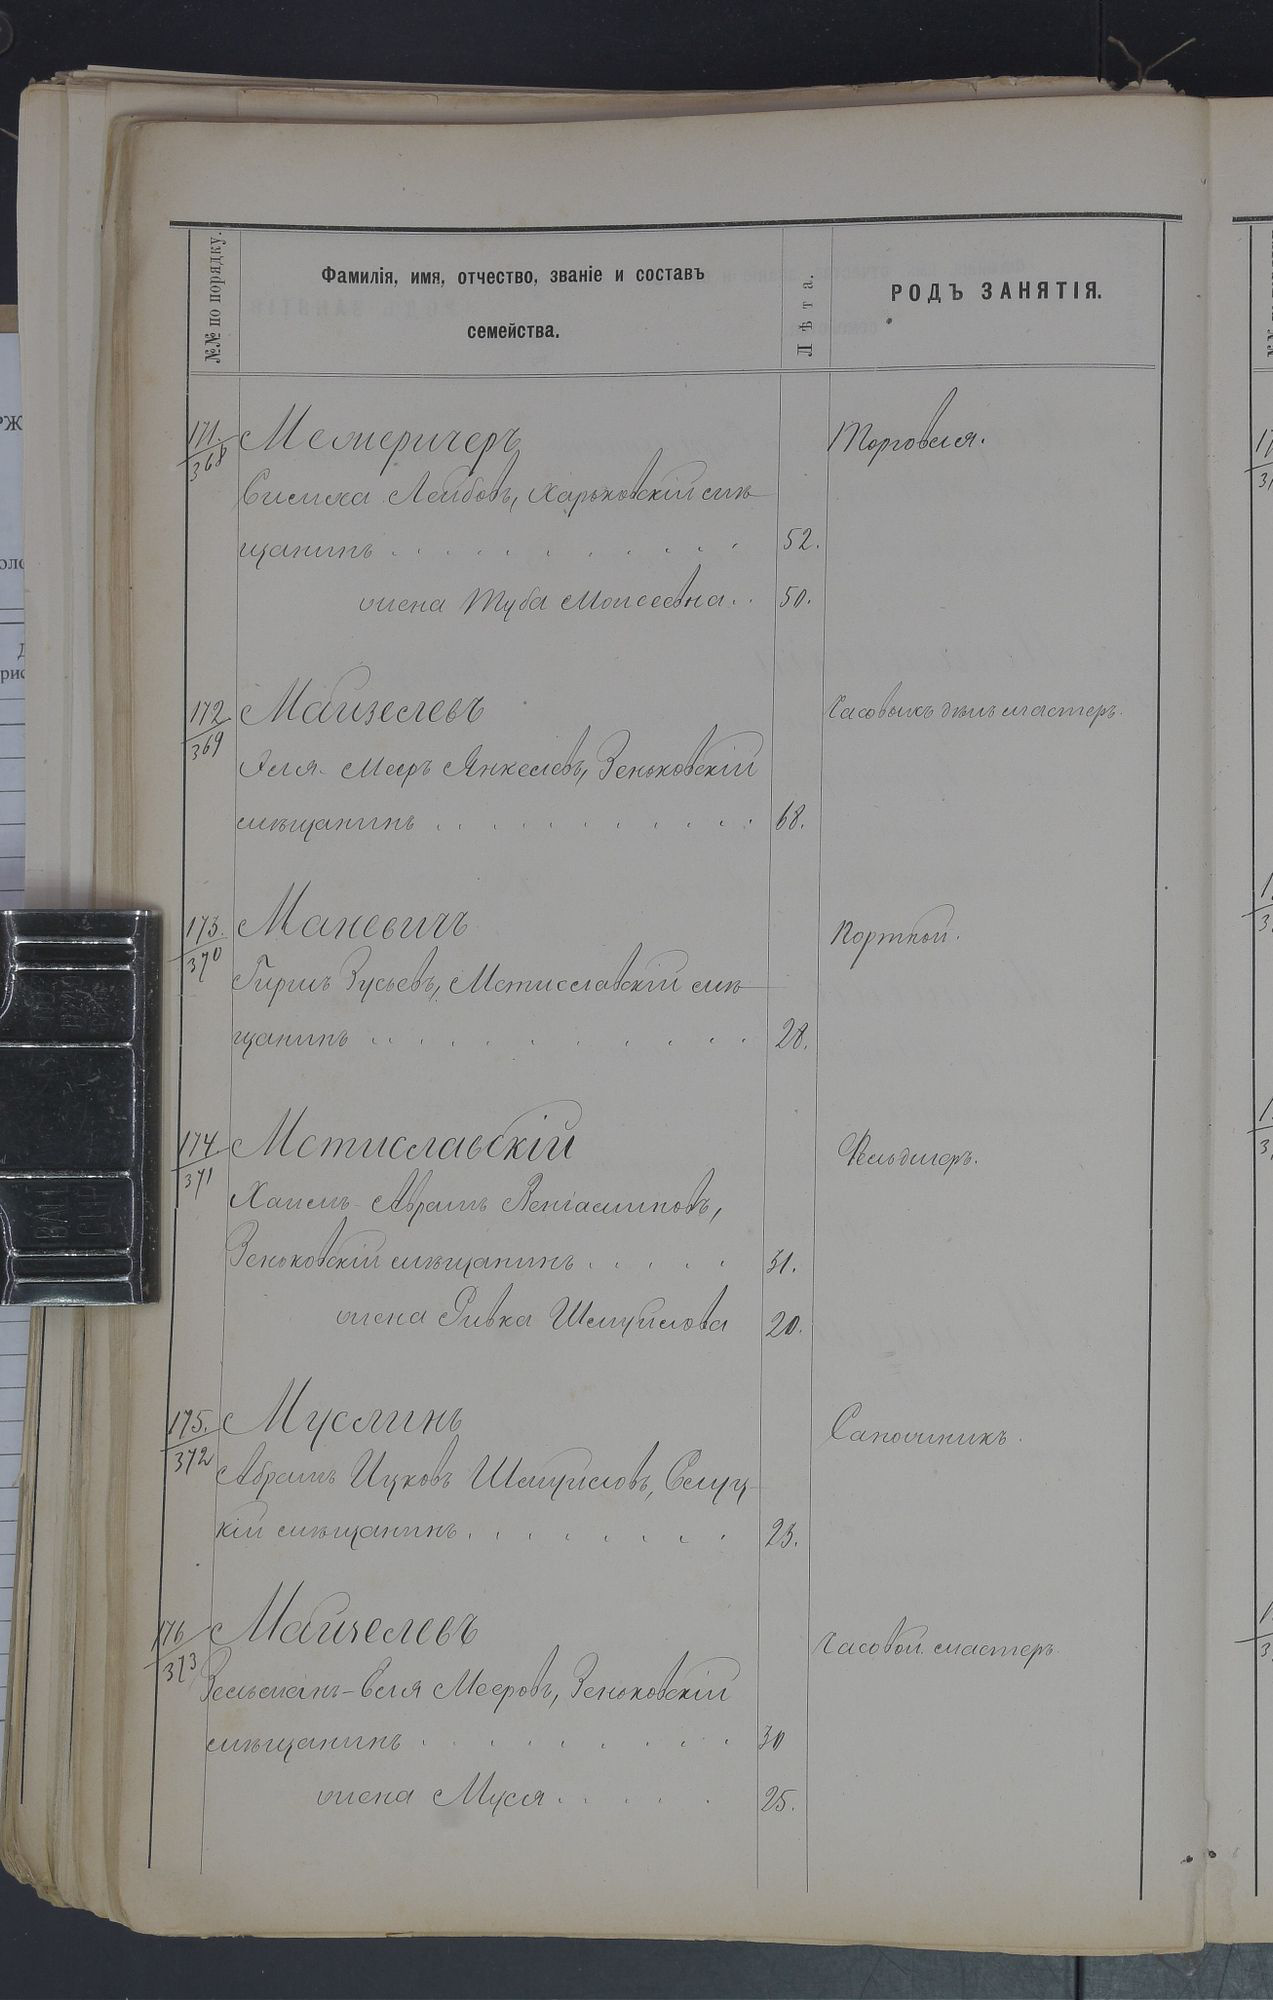 №№ по порядку.
Фамилія, имя, отчество, званіе и составъ
семейства.
Лѣта.
РОДЪ ЗАНЯТІЯ.
171. Межеричеръ Торговля.
368
Симха Лейбовъ, Харьковскій мѣ-
щанинъ . . . . . . . . . . . 52.
жена Туба Моисеевна . . 50.
172 Майзелевъ Часовыхъ дѣлъ мастеръ.
369
Эля-Мееръ Янкелевъ, Зеньковскій
мѣщанинъ . . . . . . . . . . . 68.
173. Маневичъ Портной.
370
Гиршъ Зусьевъ, Мстиславскій мѣ-
щанинъ . . . . . . . . . . 28.
174. Мстиславскій Фельдшеръ.
371
Хаимъ-Абрамъ Веніаминовъ,
Зеньковскій мѣщанинъ . . . . . 31.
жена Ривка Шмуйлова 20.
175. Муслинъ Сапожникъ.
372
Абрамъ Ицковъ Шмуйловъ, Слуц-
кій мѣщанинъ . . . . . . . . 23.
176 Майзелевъ Часовой мастеръ
373
Зельманъ-Еля Мееровъ, Зеньковскій
мѣщанинъ . . . . . . . . . 30
жена Муся . . . . . 25.